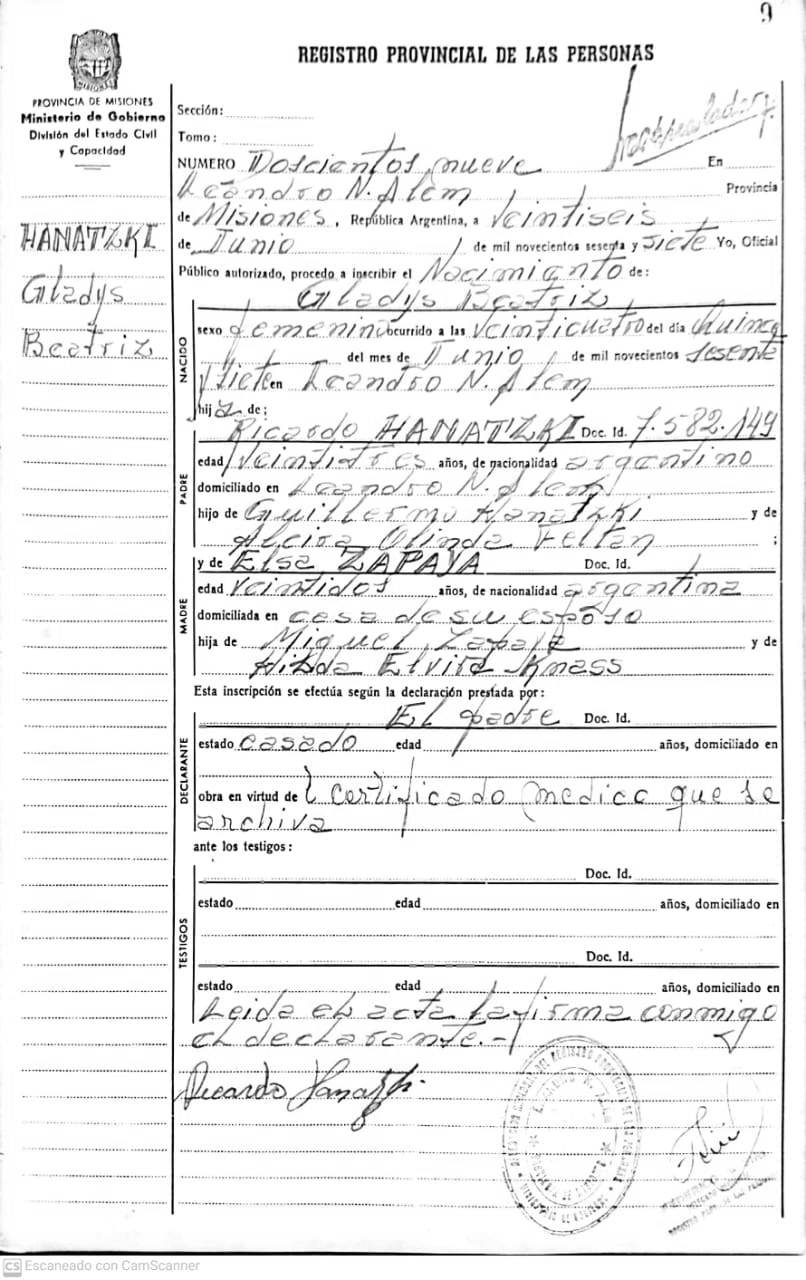 9
REGISTRO PROVINCIAL DE LAS PERSONAS
PROVINCIA DE MISIONES
Ministerio de Gobierno
División del Estado Civil
y Capacidad
HANATZKI
Gladys
Beatriz
Sección:
Tomo:
NUMERO Doscientos nueve En
Leandro N. Alem Provincia
de Misiones, República Argentina, a Veintiseis
de Junio de mil novecientos sesenta y siete Yo, Oficial
Público autorizado, procedo a inscribir el Nacimiento de:
Gladys Beatriz
NACIDO
sexo femenino ocurrido a las veinticuatro del día Quince
del mes de Junio de mil novecientos sesenta
y siete en Leandro N. Alem
hija de:
PADRE
Ricardo HANATZKI Doc. Id. 7.582.149
edad Veintitres años, de nacionalidad argentino
domiciliado en Leandro N. Alem
hijo de Guillermo Hanatzki y de
Alcira Olinda Feltan ;
MADRE
y de Elsa ZAPAYA Doc. Id.
edad Veintidos años, de nacionalidad argentina
domiciliada en casa de su esposo
hija de Miguel Zapaya y de
Hilda Elvira Knass
Esta inscripción se efectúa según la declaración prestada por:
DECLARANTE
El padre Doc. Id.
estado casado edad años, domiciliado en
obra en virtud de certificado medico que se
archiva
ante los testigos:
TESTIGOS
Doc. Id.
estado edad años, domiciliado en
Doc. Id.
estado edad años, domiciliado en
Leida el acta la firma conmigo
el declarante.-
Ricardo Hanatzki
CS Escaneado con CamScanner